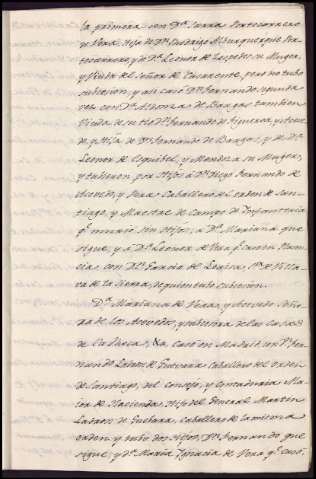 la primera con Dª. Juana Portocarrero
y Vera, hija de Dn. Rodrigo Alburquerque Por
tocarrero y de Dª. Leonor de Cespedes su Muger,
y Viuda del Señor de pero no tubo
subcesion, y asi casó Dn. Fernando segunda
vez con Dª. Aldonza de Bargas tambien
Viuda de su tio Dn. Fernando de Figueroa, y
y Hija de Dn. Fernando de Bargas, y de Dª.
Leonor de Esquibel, y Mendoza su Muger,
y tubieron por Hijos á Dn. Diego Fernando de
y Vera Caballero del orden de San-
tiago, y Maestre de Campo de Infanteria
qe. murio sin Hijos; á Dª. Mariana que
sigue, y á Dª. Leonor de Vera qe. casó en Plasen
cias con Dn. Garcia de Sr. de Villa
va de la Sierra, de quien tubo subcesion.
Dª. Mariana de Vera, y Acevedo Seño
ra de los Acevedos, y subcesora de las casas
de Casó en Madrid con Dn. Fer
nando Ladron de Guevara Caballero del orden
de Santiago, del Consejo, y Contaduria Ma
ior de Hacienda, Hijo del General Martin
Ladron de Guebara, Caballero de la misma
orden, y tubo dos Hijos, Dn. Fernando que
sigue y Dª. Maria Ignacia de Vera qe. casó